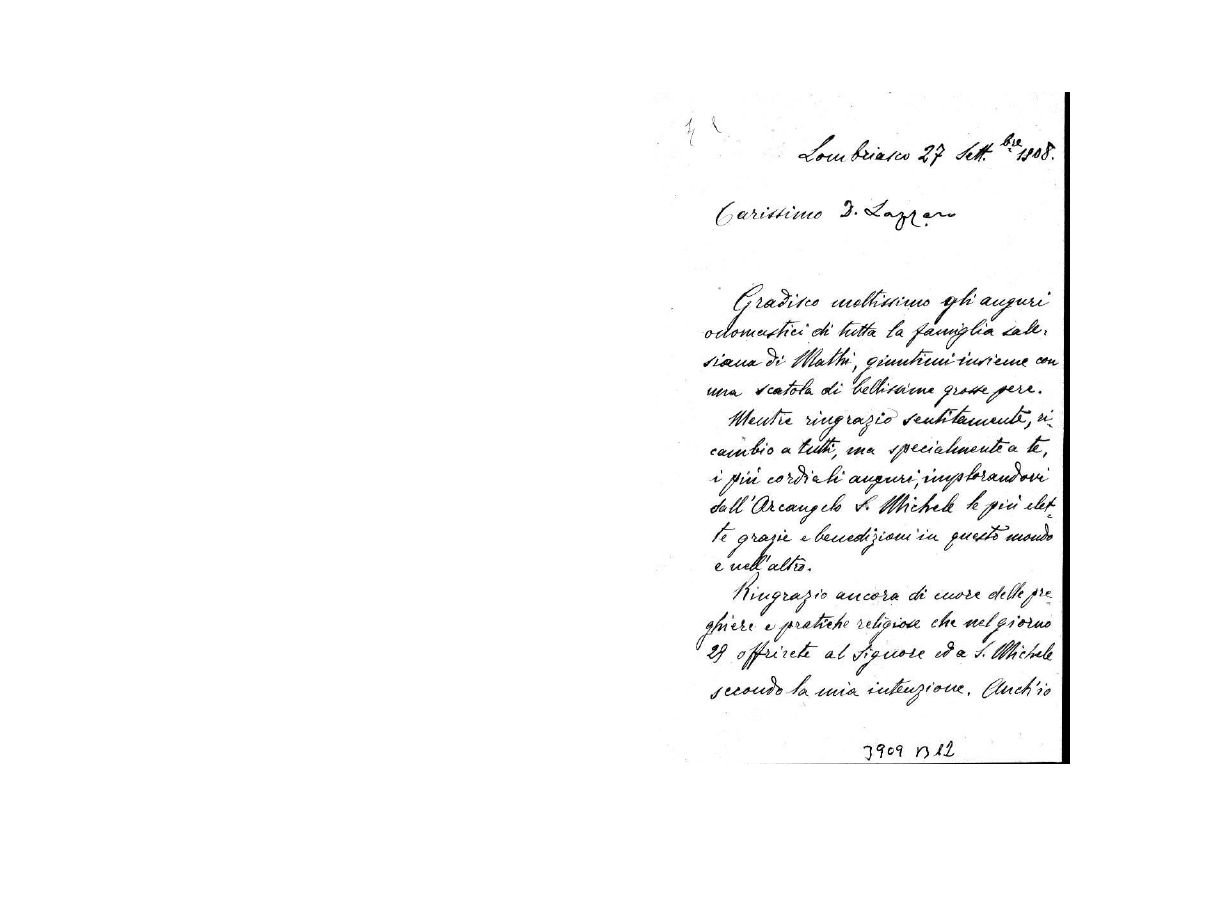 Lombriasco 27 Sett.bre 1908.
Carissimo D. Lazzero
Gradisco moltissimo gli auguri
onomastici di tutta la famiglia sale-
siana di Mathi, giuntimi insieme con
una scatola di bellissime grosse pere.
Mentre ringrazio sentitamente, ri-
cambio a tutti, ma specialmente a te,
i più cordiali auguri, implorandovi
dall'Arcangelo S. Michele le più elet-
te grazie e benedizioni in questo mondo
e nell'altro.
Ringrazio ancora di cuore delle pre-
ghiere e pratiche religiose che nel giorno
29 offrirete al Signore ed a S. Michele
secondo la mia intenzione. Anch'io
3909 B12